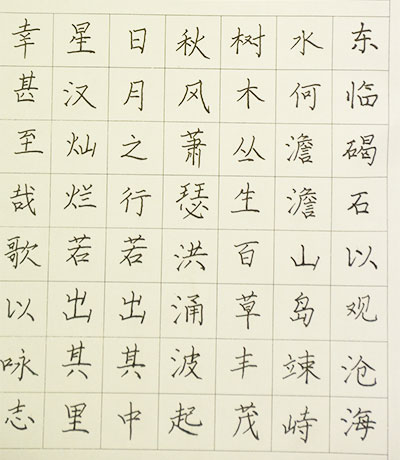 东临碣石以观沧海
水何澹澹山岛竦峙
树木丛生百草丰茂
秋风萧瑟洪涌波起
日月之行若出其中
星汉灿烂若出其里
幸甚至哉歌以咏志